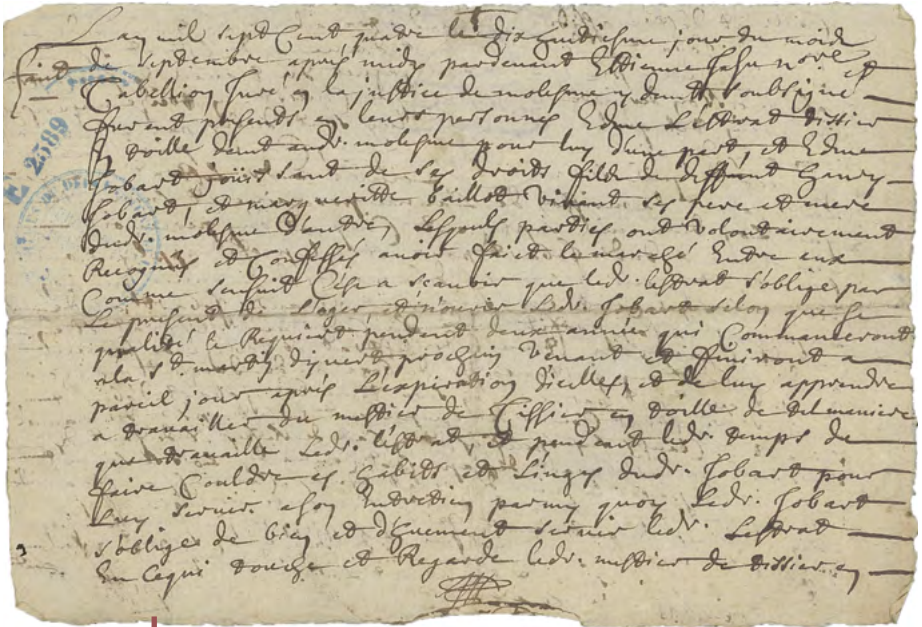 Lan mil sept Cent quatre le dix huictiesme jour du mois
de septembre apres midy pardevant Estienne not.re et
Tabellion Juré en la justice de molesme y demt soubsigné
furent presents en leurs personnes Edme Lestrat tissier
en toille demt aud.t molesme pour luy d'une part, et Edme
Jobart jouissant de ses droits fils de deffunt
Jobart, et margueritte baillot vivant ses pere et mere
dud.t molesme d'autre, Lesquels parties ont volontairement
Recognus et Confessés avoir faict le marché Entre eux
Comme sensuit C'est a scavoir que led.t lestrat s'oblige par
Le present de Loger et nourir Led.t Jobart selon que sa
qualité le Requiert pendant deux année qui Commanceront
a la St martin d'yvert prochain venant et finiront a
pareil jour apres L'expiration d'icelles, et de luy apprendre
a travailler du mestier de Tissier en toille de del maniere
que travaille Led.t lestrat, et pendant led.t temps de
faire Couldre es habits et Linges dud.t Jobart pour
Luy servir a son Entretien parmy quoy Led.t Jobart
s'oblige de bien et deuement servir led.t Lestrat
En Ce qui touche et Regarde led.t mestier de tissier en
E 2389